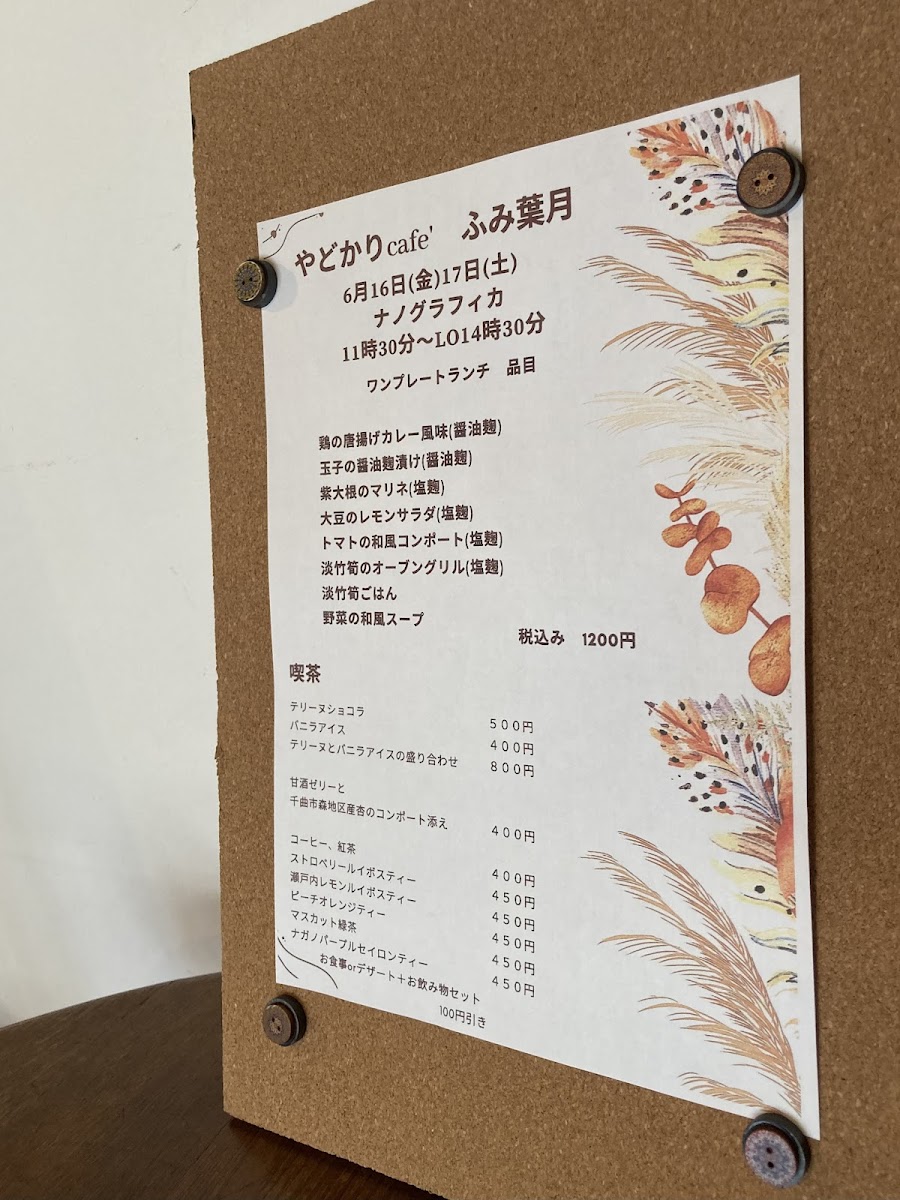 やどかりcafe' ふみ葉月
6月16日(金)17日(土)
ナノグラフィカ
11時30分〜LO14時30分
ワンプレートランチ 品目
鶏の唐揚げカレー風味(醤油麹)
玉子の醤油麹漬け(醤油麹)
紫大根のマリネ(塩麹)
大豆のレモンサラダ(塩麹)
トマトの和風コンポート(塩麹)
淡竹筍のオーブングリル(塩麹)
淡竹筍ごはん
野菜の和風スープ
税込み 1200円
喫茶
テリーヌショコラ 500円
バニラアイス 400円
テリーヌとバニラアイスの盛り合わせ 800円
甘酒ゼリーと
千曲市森地区産杏のコンポート添え 400円
コーヒー、紅茶 400円
ストロベリールイボスティー 450円
瀬戸内レモンルイボスティー 450円
ピーチオレンジティー 450円
マスカット緑茶 450円
ナガノパープルセイロンティー 450円
お食事orデザート＋お飲み物セット
100円引き